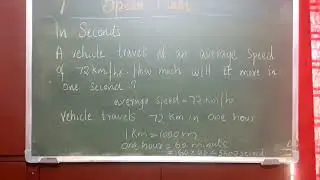 Speed
In Seconds
A vehicle travel at an average speed
of 72 km/hr. How much will it move in
one second?
average speed = 72 km/hr
Vehicle travels 72 km in one hour
1 km = 1000 m
one hour = 60 minute
= 60 × 60 = 3600 second